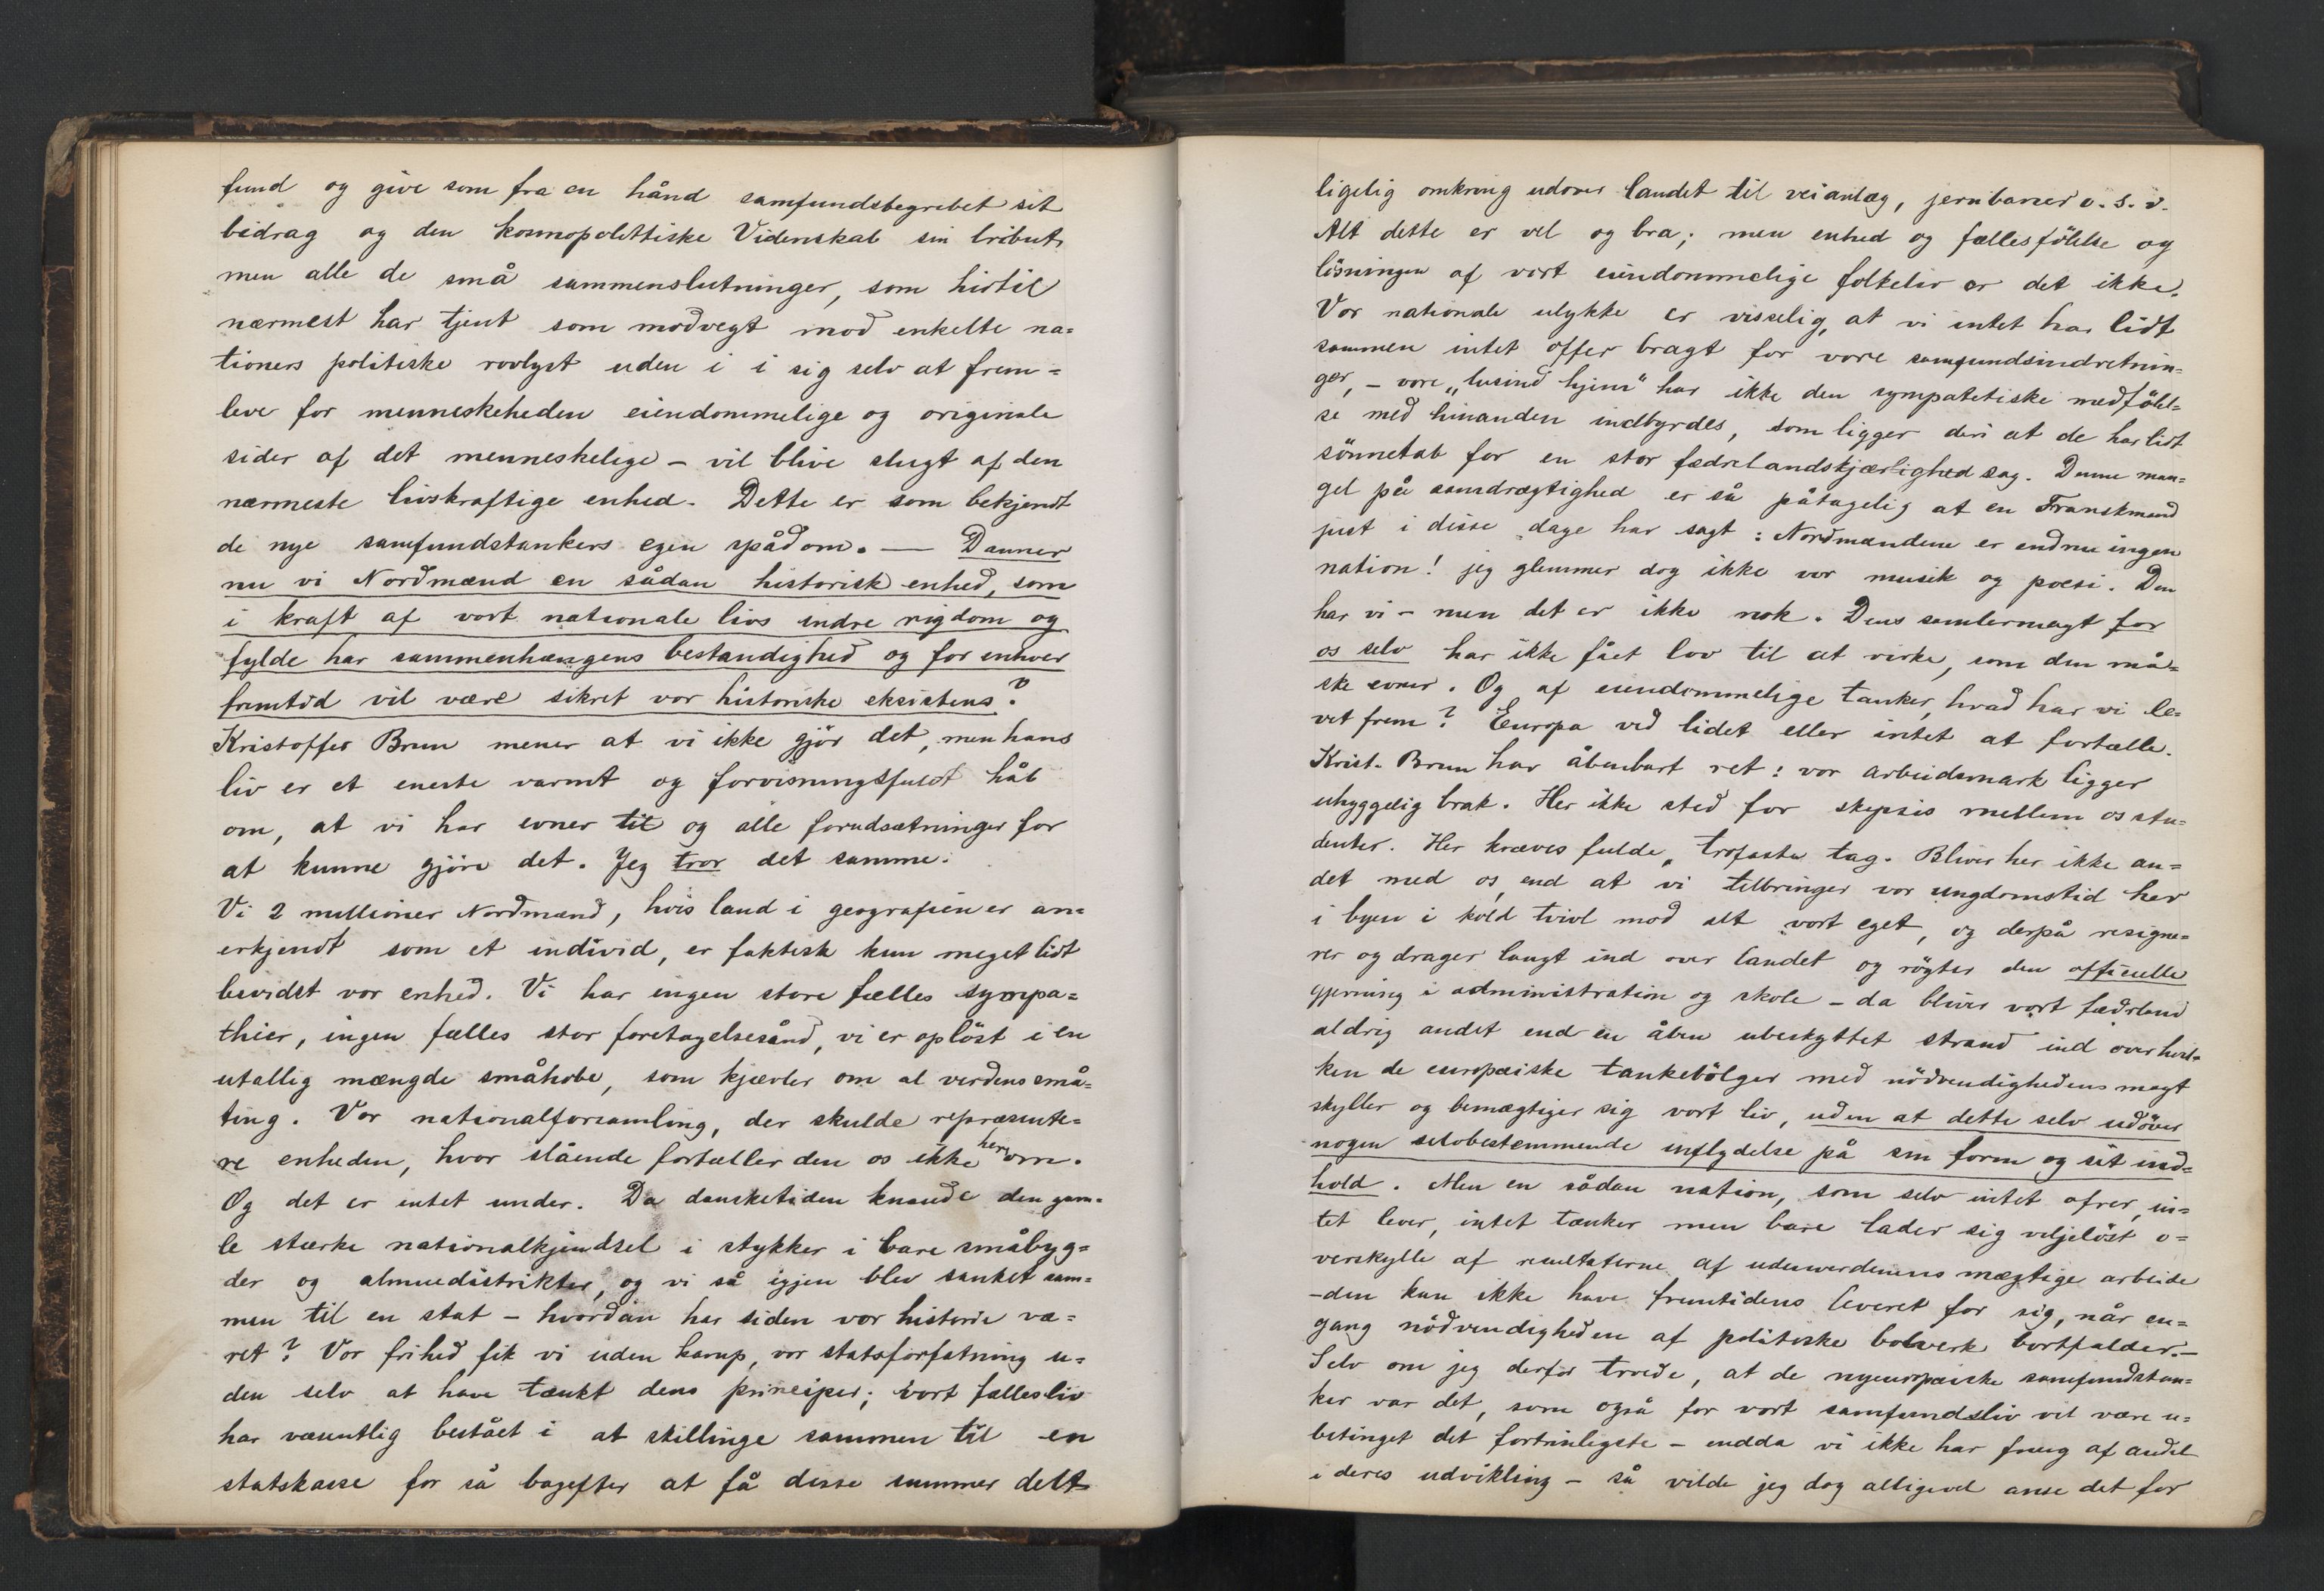 fund og give som fra en hånd samfundsbegrebet sit
bidrag og den kosmopolittiske Videnskab sin tribut,
men alle de små sammenslutninger, som hidtil
nærmest har tjent som modvegt mod enkelte na=
tioners politiske rovlyst uden i i sig selv at frem=
leve for menneskeheden eiendommelige og originale
sider af det menneskelige – vil blive slugt af den
nærmeste livskraftige enhed. Dette er som bekjendt
de nye samfundstankers egen spådom. — Danner
nu vi Nordmænd en sådan historisk enhed, som
i kraft af vort nationale livs indre rigdom og
fylde har sammenhængens bestandighed og for enhver
fremtid vil være sikret vor historiske eksistens?
Kristoffer Brun mener at vi ikke gjör det, men hans
liv er et eneste varmt og forvisningsfuldt håb
om, at vi har evner til og alle forudsætninger for
at kunne gjöre det. Jeg tror det samme.
Vi 2 millioner Nordmænd, hvis land i geografien er an=
erkjendt som et individ, er faktisk kun meget lidt
bevidst vor enhed. Vi har ingen store fælles sympa=
thier, ingen fælles stor foretagelsesånd, vi er oplöst i en
utallig mængde småhobe, som kjævler om al verdens små=
ting. Vor nationalforsamling, der skulde repræsente=
re enheden, hvor slående fortæller den os ikke herom.
Og det er intet under. Da dansketiden knuste den gam=
le stærke nationalkjendsel i stykker i bare småbyg=
der og almuedistrikter, og vi så igjen blev sanket sam=
men til en stat – hvordan har siden vor historie væ=
ret? Vor frihed fik vi uden kamp, vor statsforfatning u=
den selv at have tænkt dens principer; vort fællesliv
har væsentlig bestået i at skillinge sammen til en
statskasse for så bagefter at få disse summer delt
ligelig omkring udover landet til veianlæg, jernbaner o. s. v.
Alt dette er vel og bra; men enhed og fællesfölelse og
lösningen af vort eiendommelige folkeliv er det ikke.
Vor nationale ulykke er visselig, at vi intet har lidt
sammen intet offer bragt for vore samfundsindretnin=
ger, – vore „tusind hjem" har ikke den sympatetiske medfölel=
se med hinanden indbyrdes, som ligger deri at de har lidt
sönnetab for en stor fædrelandskjærlighed sag. Denne man=
gel på samdrægtighed er så påtagelig at en Franskmand
just i disse dage har sagt: Nordmændene er endnu ingen
nation! jeg glemmer dog ikke vor musik og poesi. Den
har vi – men det er ikke nok. Dens samlermagt for
os selv har ikke fået lov til at virke, som den må=
ske evner. Og af eiendommelige tanker, hvad har vi le=
vet frem? Europa ved lidet eller intet at fortælle.
Krist. Brun har åbenbart ret: vor arbeidsmark ligger
uhyggelig brak. Her ikke sted for skepsis mellem os stu=
denter. Her kræves fulde, trofaste tag. Bliver her ikke an=
det med os, end at vi tilbringer vor ungdomstid her
i byen i kold tvivl mod alt vort eget, og derpå resigne=
rer og drager langt ind over landet og rögter den officielle
gjerning i administration og skole – da bliver vort fædreland
aldrig andet end en åben ubeskyttet strand ind over hvil=
ken de europæiske tankebölger med nödvendighedens magt
skyller og bemægtiger sig vort liv, uden at dette selv udöver
nogen selvbestemmende inflydelse på sin form og sit ind=
hold. Men en sådan nation, som selv intet ofrer, in=
tet lever, intet tænker men bare lader sig viljelöst o=
verskylle af resultaterne af udenverdenens mægtige arbeide
– den kan ikke have fremtidens leveret for sig, når en=
gang nödvendigheden af politiske bolverk bortfalder. –
Selv om jeg derfor troede, at de nyeuropæiske samfundstan=
ker var det, som også for vort samfundsliv vil være u=
betinget det fortrinligste – endda vi ikke har af andel
i deres udvikling – så vilde jeg dog alligevel anse det for